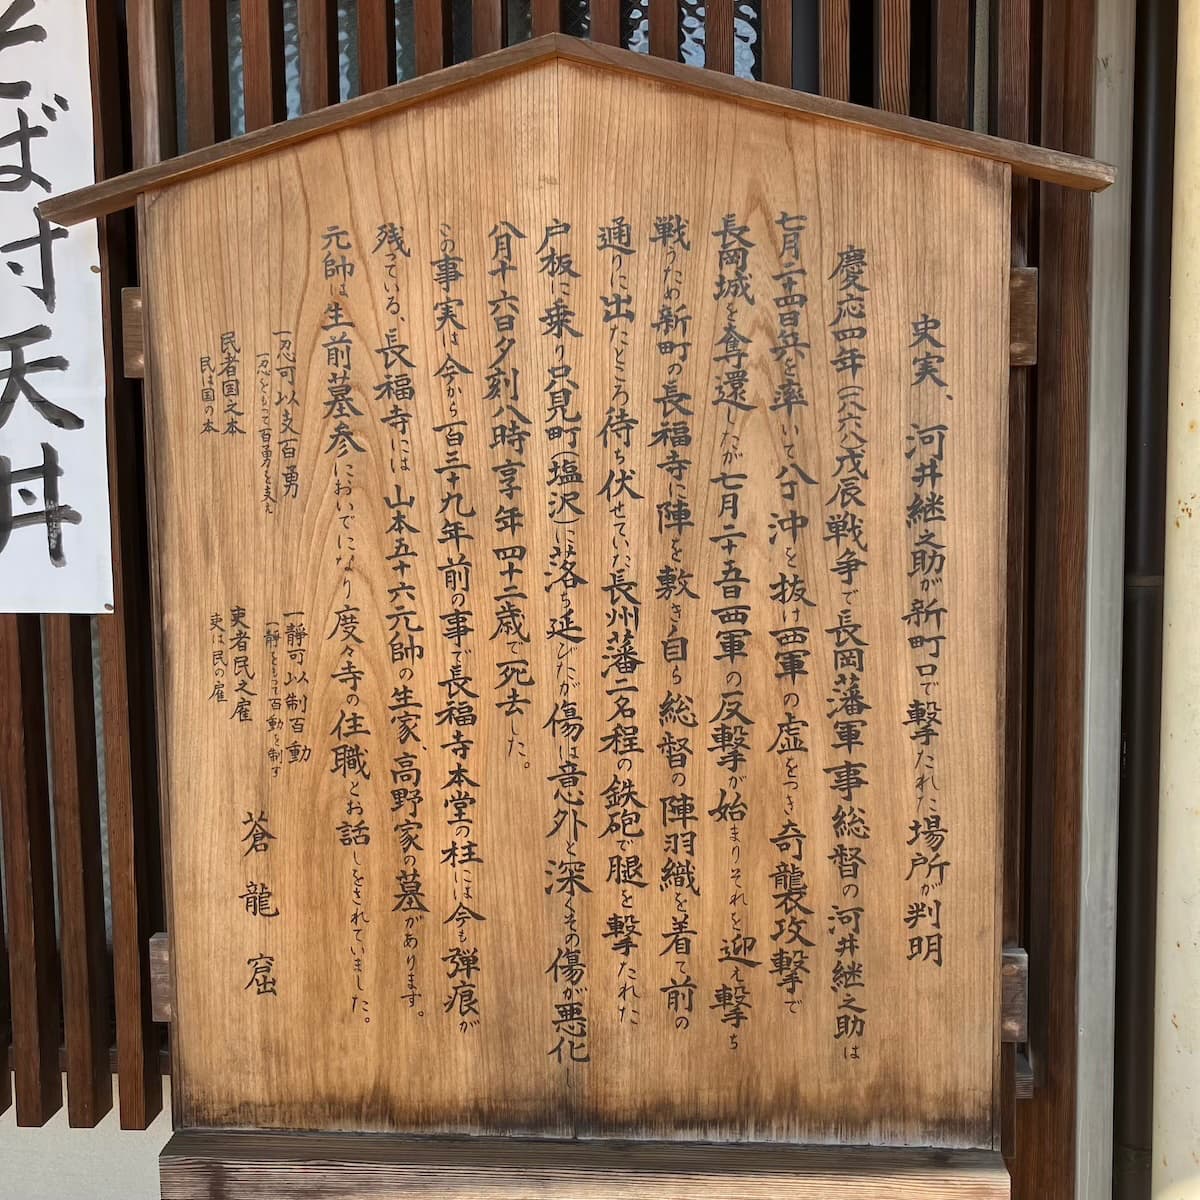 史実、河井継之助が新町口で撃たれた場所が判明
慶応四年(一八六八)戊辰戦争で長岡藩軍事総督の河井継之助は
七月二十四日兵を率いて八丁沖を抜け西軍の虚をつき奇襲攻撃で
長岡城を奪還したが七月二十五日西軍の反撃が始まりそれを迎え撃ち
戦うため新町の長福寺に陣を敷き自ら総督の陣羽織を着て前の
通りに出たところ待ち伏せていた長州藩二名程の鉄砲で腿を撃たれた
戸板に乗り只見町(塩沢)に落ち延びたが傷は意外と深くその傷が悪化し
八月十六日夕刻八時享年四十二歳で死去した。
この事実は今から百三十九年前の事で長福寺本堂の柱には今も弾痕が
残っている、長福寺には山本五十六元帥の生家、高野家の墓があります。
元帥は生前墓参においでになり度々寺の住職とお話しをされていました。
一忍可以支百勇
一忍をもって百勇を支え
一静可以制百動
一静をもって百動を制す
民者国之本
民は国の本
吏者民之雇
吏は民の雇
蒼龍窟
そば 寸 天丼